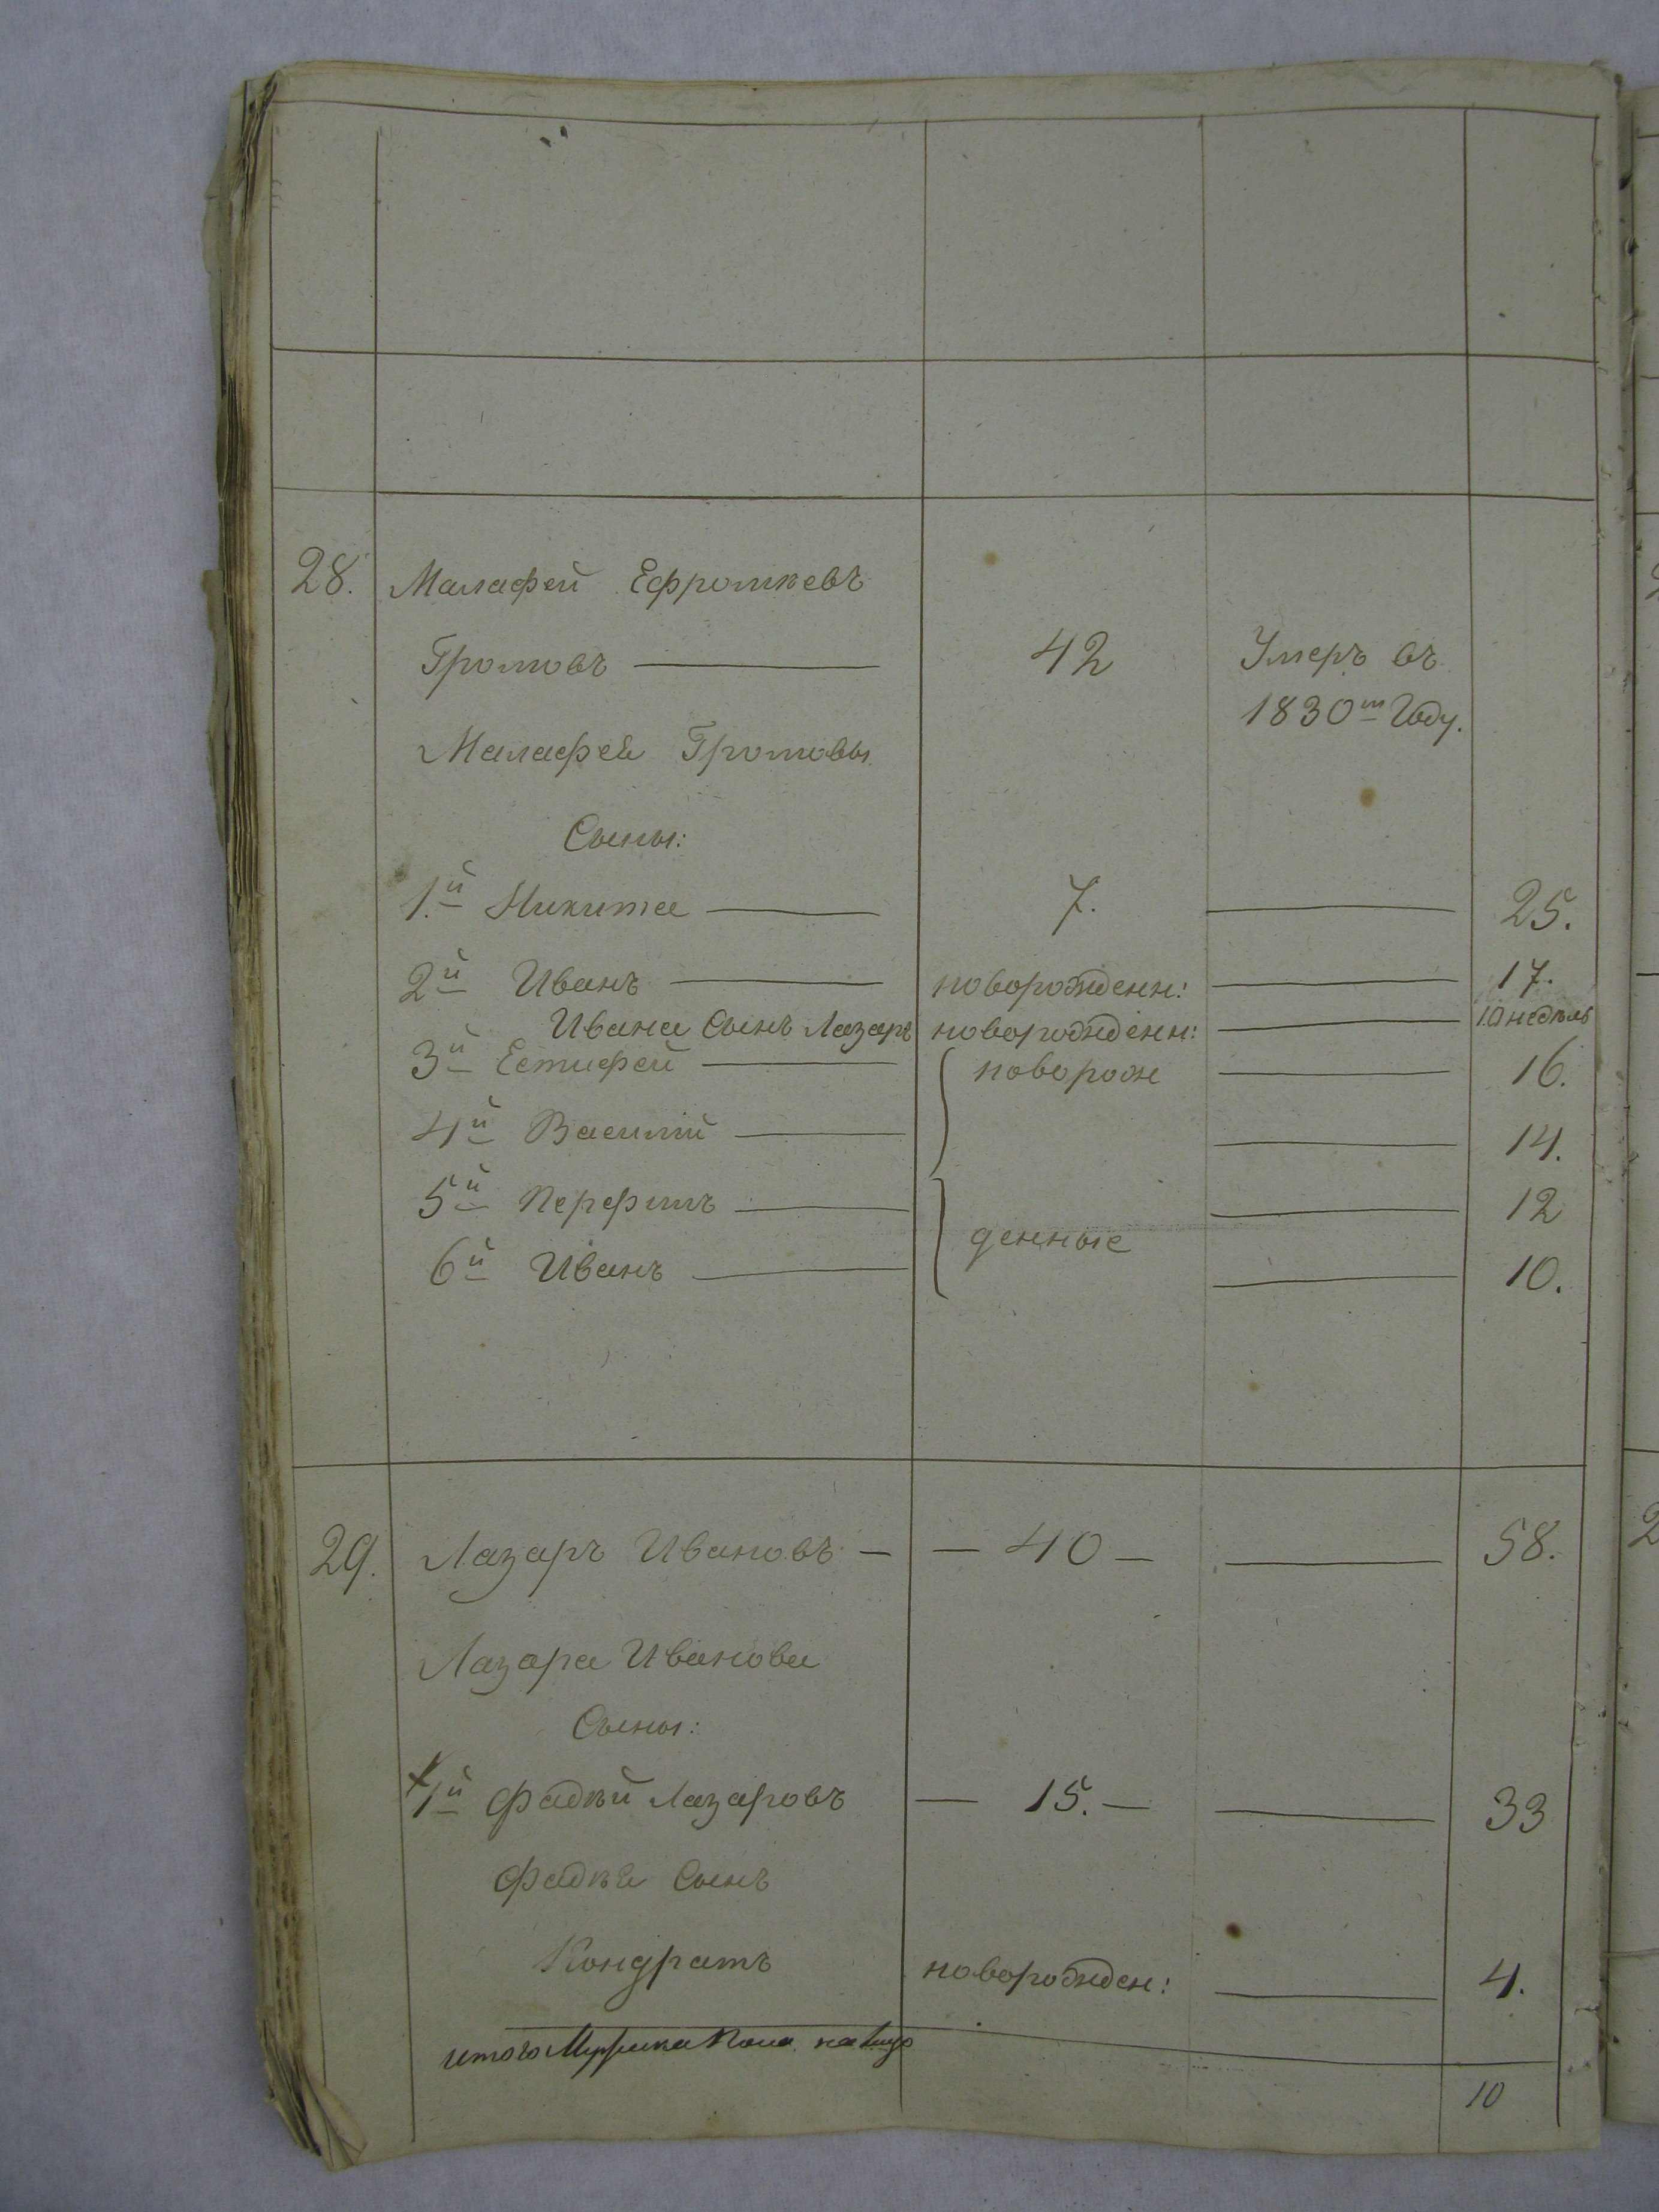 28. Малафей Ефромкевъ
Громовъ — 42 Умеръ въ
1830м Году.
Малафея Громовы
Сыны:
1.й Никита — 7. — 25.
2й Иванъ — новорожденн: — 17.
Ивана Сынъ Лазарь новорожденн: — 10 недѣль
3й Естифей — новорож — 16.
4й Василий — 14.
5й Перфилъ — 12
денные
6й Иванъ — 10.
29. Лазарь Ивановъ — — 40 — — 58.
Лазаря Иванова
Сыны:
1й Фадѣй Лазаровъ — 15. — — 33
Фадѣя Сынъ
Кондратъ новорожден: — 4.
итого Мужеска Пола на лицо
10